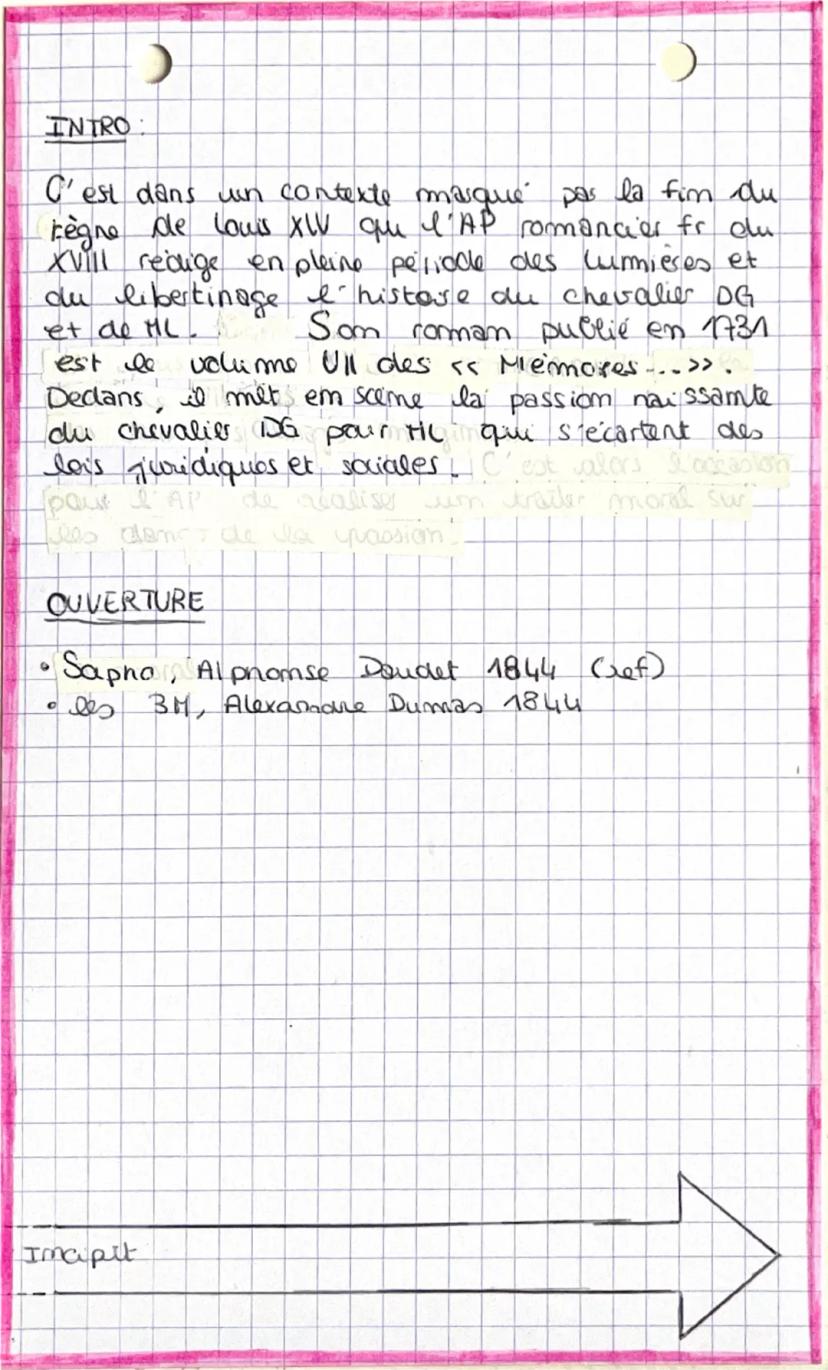 INTRO :
C'est dans un contexte marqué par la fin du
règne de Louis XIV que l'AP romancier fr du
XVIII rédige en pleine période des Lumières et
du libertinage l'histoire du chevalier DG
et de ML. Son roman publié en 1731
est le volume VII des << Mémoires ... >>.
Dedans, il met en scène la passion naissante
du chevalier DG pour ML qui s'écartent des
lois juridiques et sociales. C'est alors l'occasion
pour l'AP de réaliser un traiter moral sur
les dang de la passion.
OUVERTURE
• Sapho, Alphonse Daudet 1844 (ref)
• les 3M, Alexandre Dumas 1844
Incipit